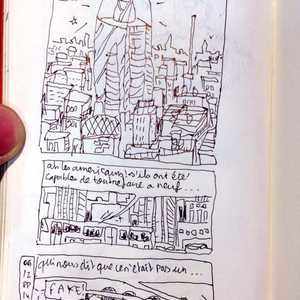 ah les americains! s'ils ont été
capables de tout refaire a neuf...
qui nous dit que ce n'était pas un...
FAKE!